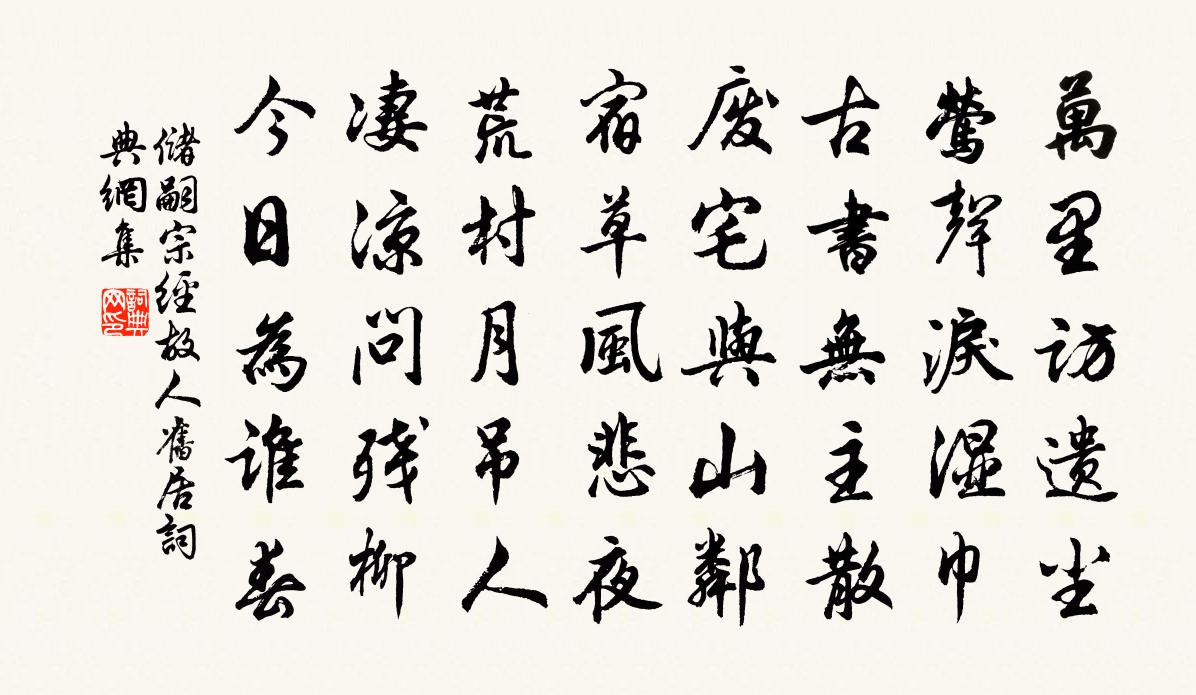 萬里訪遺尘
鶯聲淚濕巾
古書無主散
废宅與山鄰
宿草風悲夜
荒村月吊人
凄凉問残柳
今日為誰春
儲嗣宗經故人舊居詞
典網集
詞典
网印